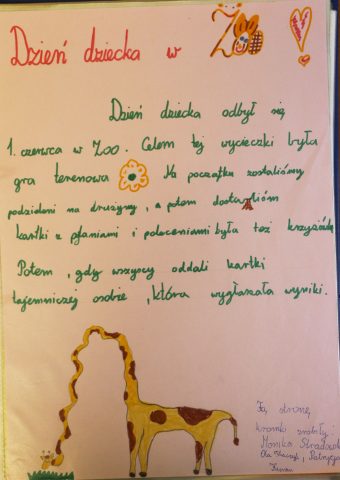 Dzień dziecka w Zoo!
Dzień dziecka odbył się
1. czerwca w Zoo. Celem tej wycieczki była
gra terenowa Na początku zostaliśmy
podzieleni na drużyny, a potem dostaliśm
kartki z pytaniami i poleceniami była też krzyżówka
Potem, gdy wszyscy oddali kartki
tajemniczej osobie, która wygłaszała wyniki.
Tą stronę
kroniki zrobiły:
Monika
Ola , Patrycja